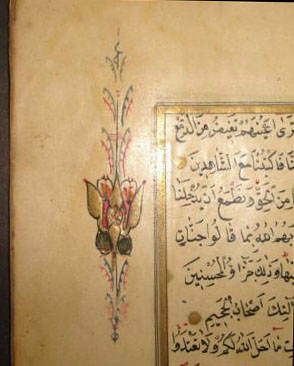 رَى اَعْيُنَهُمْ تَفِيضُ مِنَ الدَّمْعِ
نَّا فَاكْتُبْنَا مَعَ الشَّاهِدِينَ
مِنَ الْحَقِّ وَنَطْمَعُ اَنْ يُدْخِلَنَا
بَهُمُ اللّٰهُ بِمَا قَالُوا جَنَّاتٍ
يهَا وَذٰلِكَ جَزَاءُ الْمُحْسِنِينَ
لٰئِكَ اَصْحَابُ الْجَحِيمِ
تِ مَا اَحَلَّ اللّٰهُ لَكُمْ وَلَا تَعْتَدُوا